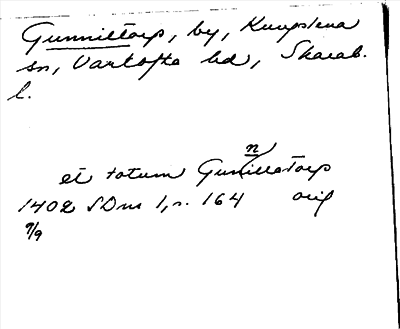 Gunniltorp, by, Kungslena
sn, Vartofta hd, Skarab.
l.
n
et totum Gunillatorp
1402 SDns 1, s. 164 orig
9/9